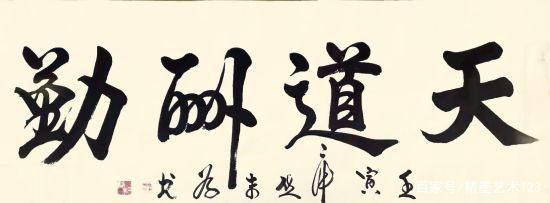 天道酬勤
壬寅
百家号/精墨艺术123